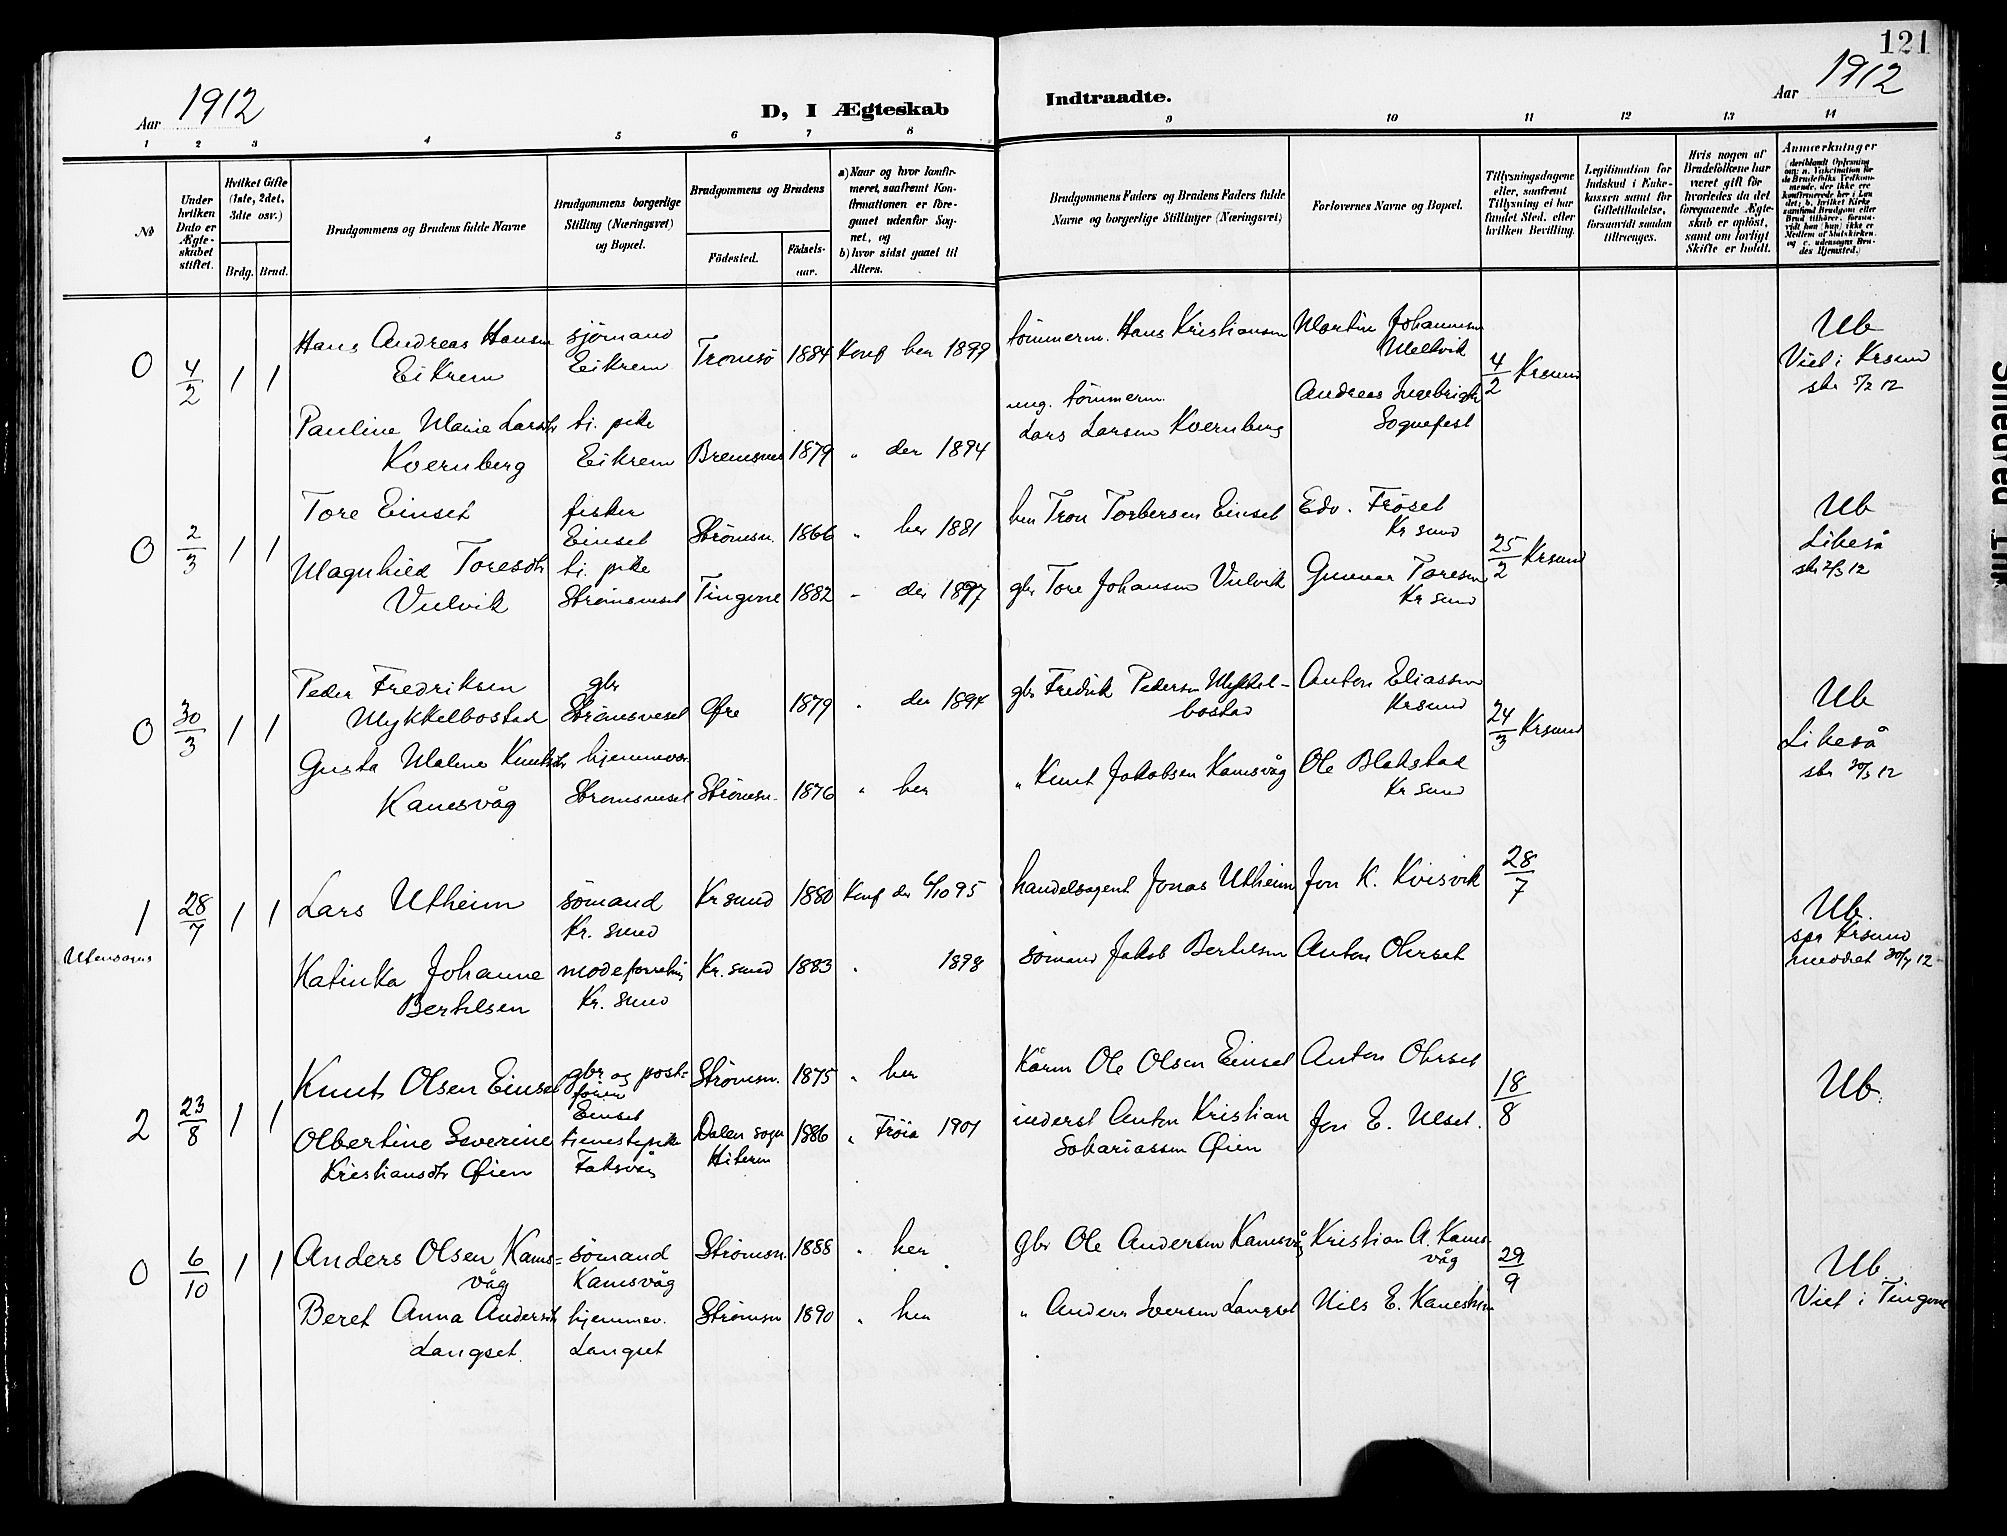 121
Aar 1912
D, I Ægteskab
Indtraadte.
Aar 1912
1 2 3 4 5 6 7 8 9 10 11 12 13 14
No
Under hvilken Dato er Ægteskabet stiftet.
Hvilket Gifte (1ste, 2det, 3dte osv.)
Brdg. Brud.
Brudgommens og Brudens fulde Navne
Brudgommens borgerlige Stilling (Næringsvei) og Bopæl.
Brudgommens og Brudens
Födested.
Födselsaar.
a) Naar og hvor konfirmeret, saafremt Konfirmationen er foregaaet udenfor Sognet, og
b) hvor sidst gaaet til Alters.
Brudgommens Faders og Brudens Faders fulde Navne og borgerlige Stillinger (Næringsvei)
Forlovernes Navne og Bopæl.
Tillysningsdagene eller, saafremt Tillysning ei har fundet Sted, efter hvilken Bevilling.
Legitimation for Indskud i Enkekassen samt for Giftetilladelse, forsaavidt saadan tiltrænges.
Hvis nogen af Brudefolkene har været gift før hvorledes da det foregaaende Ægteskab er opløst, samt om lovligt Skifte er holdt.
Anmærkninger
0 4/2 1 1
Hans Andreas Hansen
Eikrem
sjømand
Eikrem
Tromsø 1884 Konf her 1899
tømmerm. Hans Kristiansen
Martin Johannesen
Melkvik
4/2 Krsund
Ub
Viet i Krsund
Pauline Marie Larsdtr
Kvernberg
tj. pike
Eikrem
Bremsnes 1879 " der 1894
ung. tømmerm.
Lars Larsen Kvernberg
Andreas Ingebrigts
Sognefest
0 2/3 1 1
Tore Einset
fisker
Einset
Strømsn. 1866 " her 1881
Tron Torbersen Einset
Edv. Frøset
Kr sund
25/2 Krsund
Ub
Likeså
skr 2/3 12
Magnhild Toresdtr
Vulvik
tj. pike
Strømsneset
Tingvoll 1882 - der 1897
gbr Tore Johansen Vulvik
Gunnar Toresen
Kr sund
0 30/3 1 1
Peder Fredriksen
Mykkelbostad
gbr
Strømsneset
Øre 1879 " der 1894
gbr Fredrik Pedersen Mykkel-
bostad
Anton Eliassen
Krsund
24/3 Krsund
Ub
Likeså
skr 30/3 12
Gusta Malene Knutsdtr
Kanesvåg
hjemmevær.
Strømsneset
Strømsn. 1876 " her
" Knut Jakobsen Kanesvåg
Ole Blakstad
Kr sund
1 28/7 1 1
Utensogns
Lars Utheim
sømand
Kr. sund
Kr sund 1880 Konf der 6/10 95
handelsagent Jonas Utheim
Jon K. Kvisvik
28/7
Ub.
spr Krsund
meddelt 30/7 12
Katinka Johanne
Berthelsen
Kr. sund
Kr. sund 1883 " 1898
sømand Jakob Berthelsen
Anton Ohrset
2 23/8 1 1
Knut Olsen Einset
gbr og post-
fører
Einset
Strømsn. 1875 " her
Kårm Ole Olsen Einset
Anton Ohrset
18/8
Ub.
Olbertine Severine
Kristiansdtr Øien
tjenestepike
Dalen sogn
Hitern
1886 " Frøia 1901
inderst Anton Kristian
Sakariassen Øien
Jon E. Ulset.
0 6/10 1 1
Anders Olsen Kanes-
våg
sømand
Kanesvåg
Strømsn. 1888 " her
gbr Ole Andersen Kanesvåg
Kristian A. Kanes-
våg
29/9
Ub
Viet i Tingvoll
Beret Anna Andersdtr
Langset
hjemmev.
Langset
Strømsn 1890 " her
" Anders Iversen Langset
Nils E.